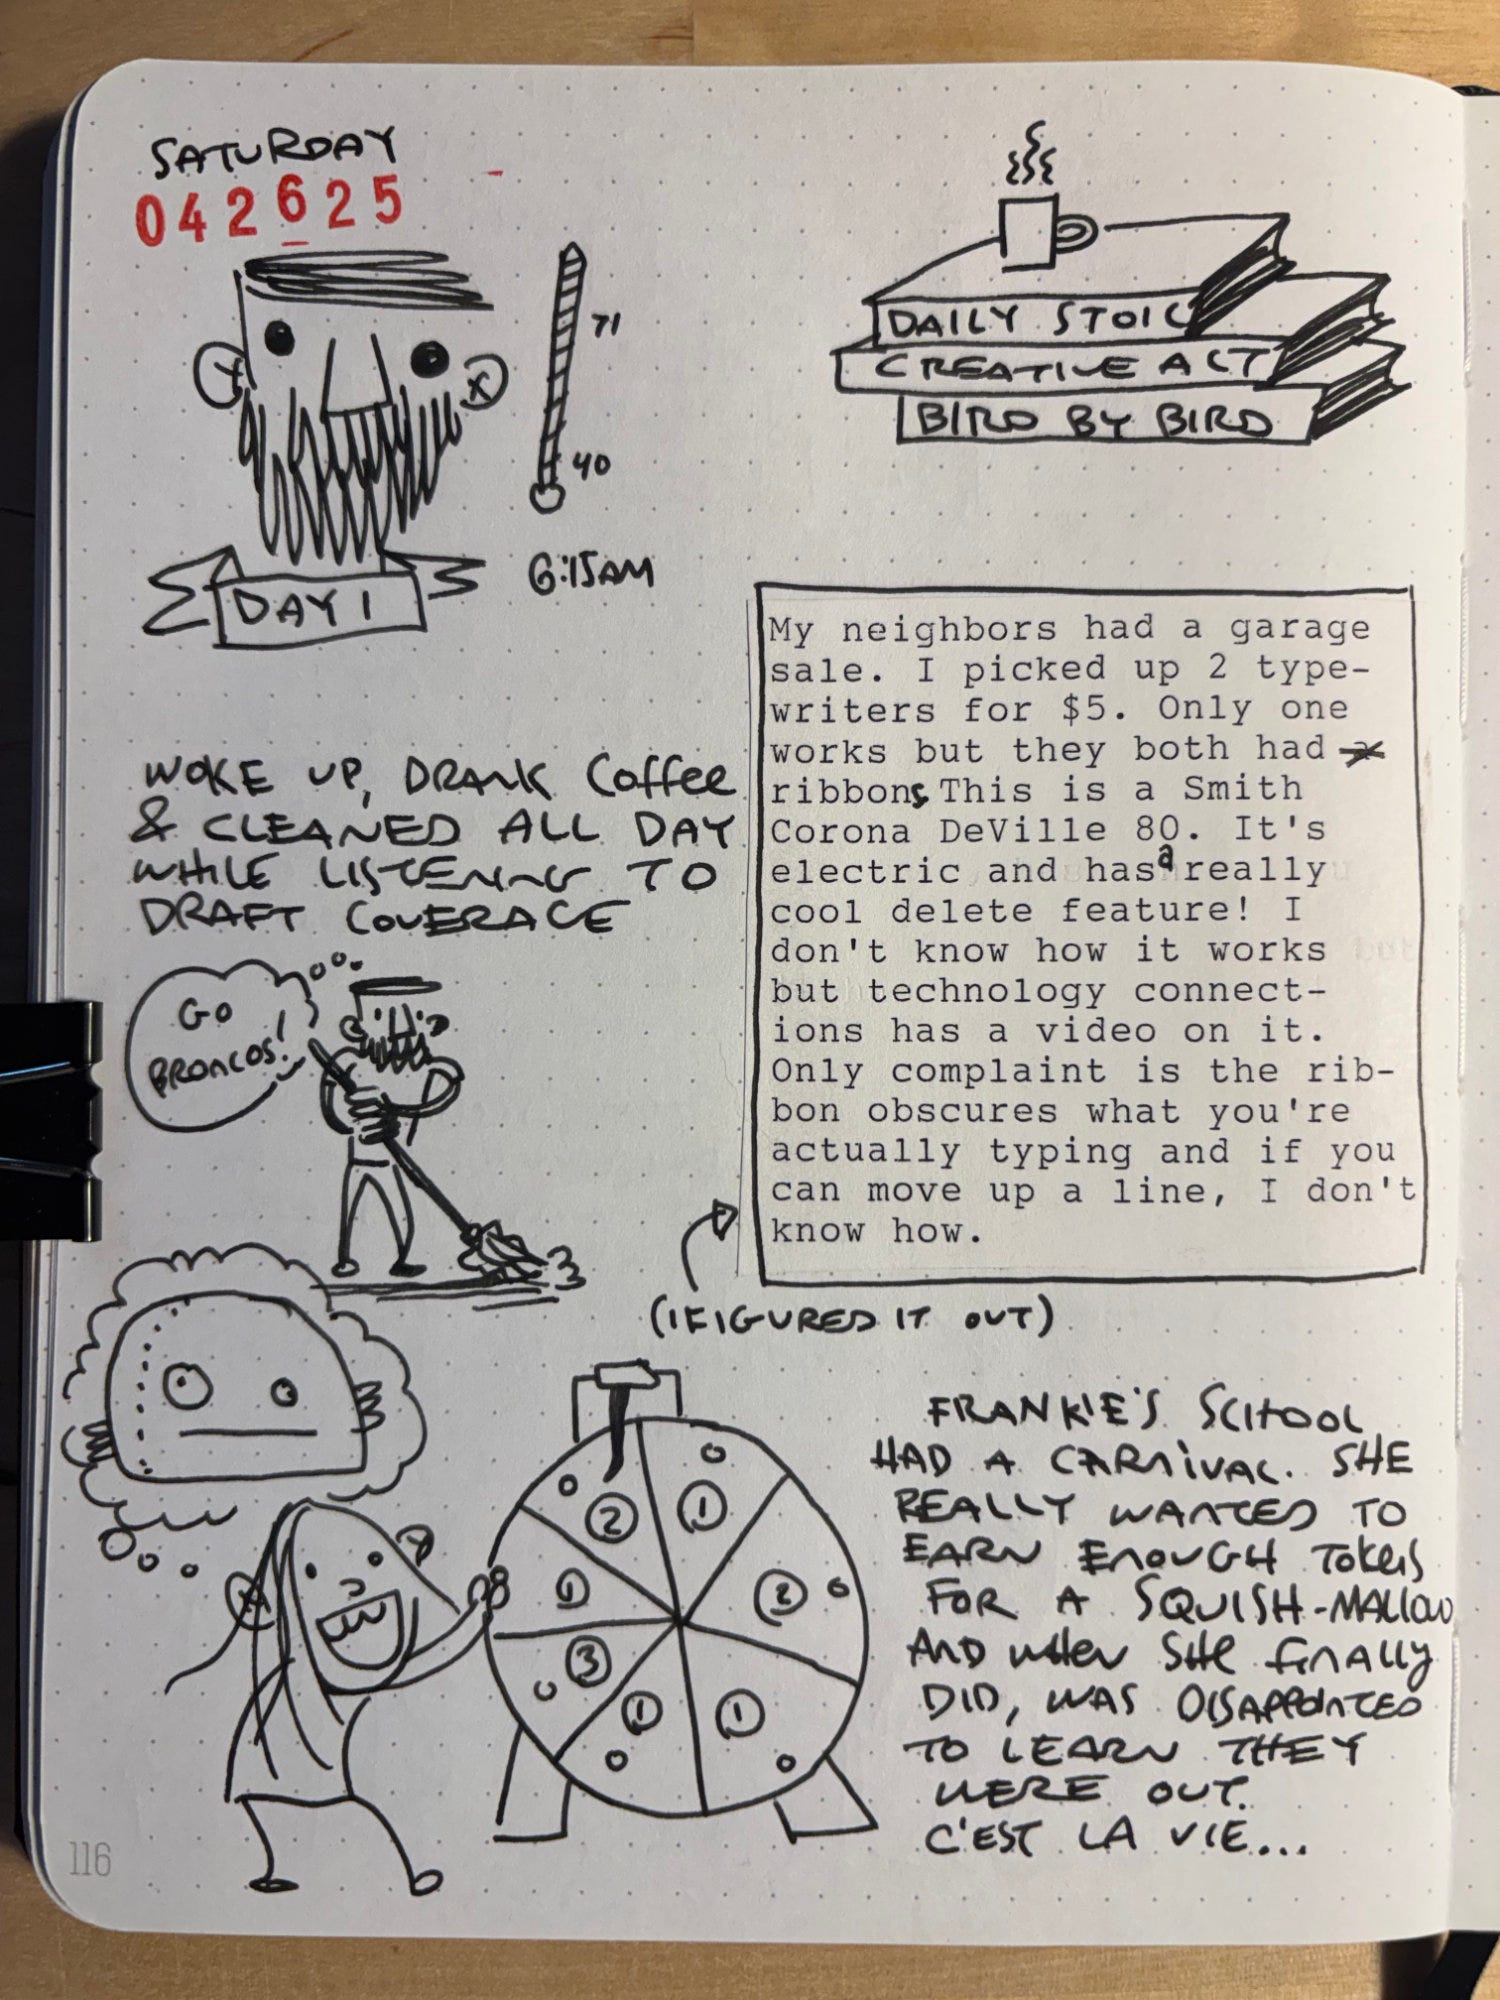 SATURDAY
042625
71
40
6:15AM
DAY 1
DAILY STOIC
CREATIVE ACT
BIRD BY BIRD
WOKE UP, DRANK Coffee
& CLEANED ALL DAY
WHILE LISTENING TO
DRAFT COVERAGE
GO
BRONCOS!
My neighbors had a garage
sale. I picked up 2 type-
writers for $5. Only one
works but they both had
ribbons This is a Smith
Corona DeVille 80. It's
electric and has a really
cool delete feature! I
don't know how it works
but technology connect-
ions has a video on it.
Only complaint is the rib-
bon obscures what you're
actually typing and if you
can move up a line, I don't
know how.
(I FIGURED IT OUT)
2
1
1
2
3
1
1
FRANKIE'S SCHOOL
HAD A CARNIVAL. SHE
REALLY WANTED TO
EARN ENOUGH TOKENS
FOR A SQUISH-MALLOW
AND WHEN SHE FINALLY
DID, WAS DISAPPOINTED
TO LEARN THEY
WERE OUT.
C'EST LA VIE...
116